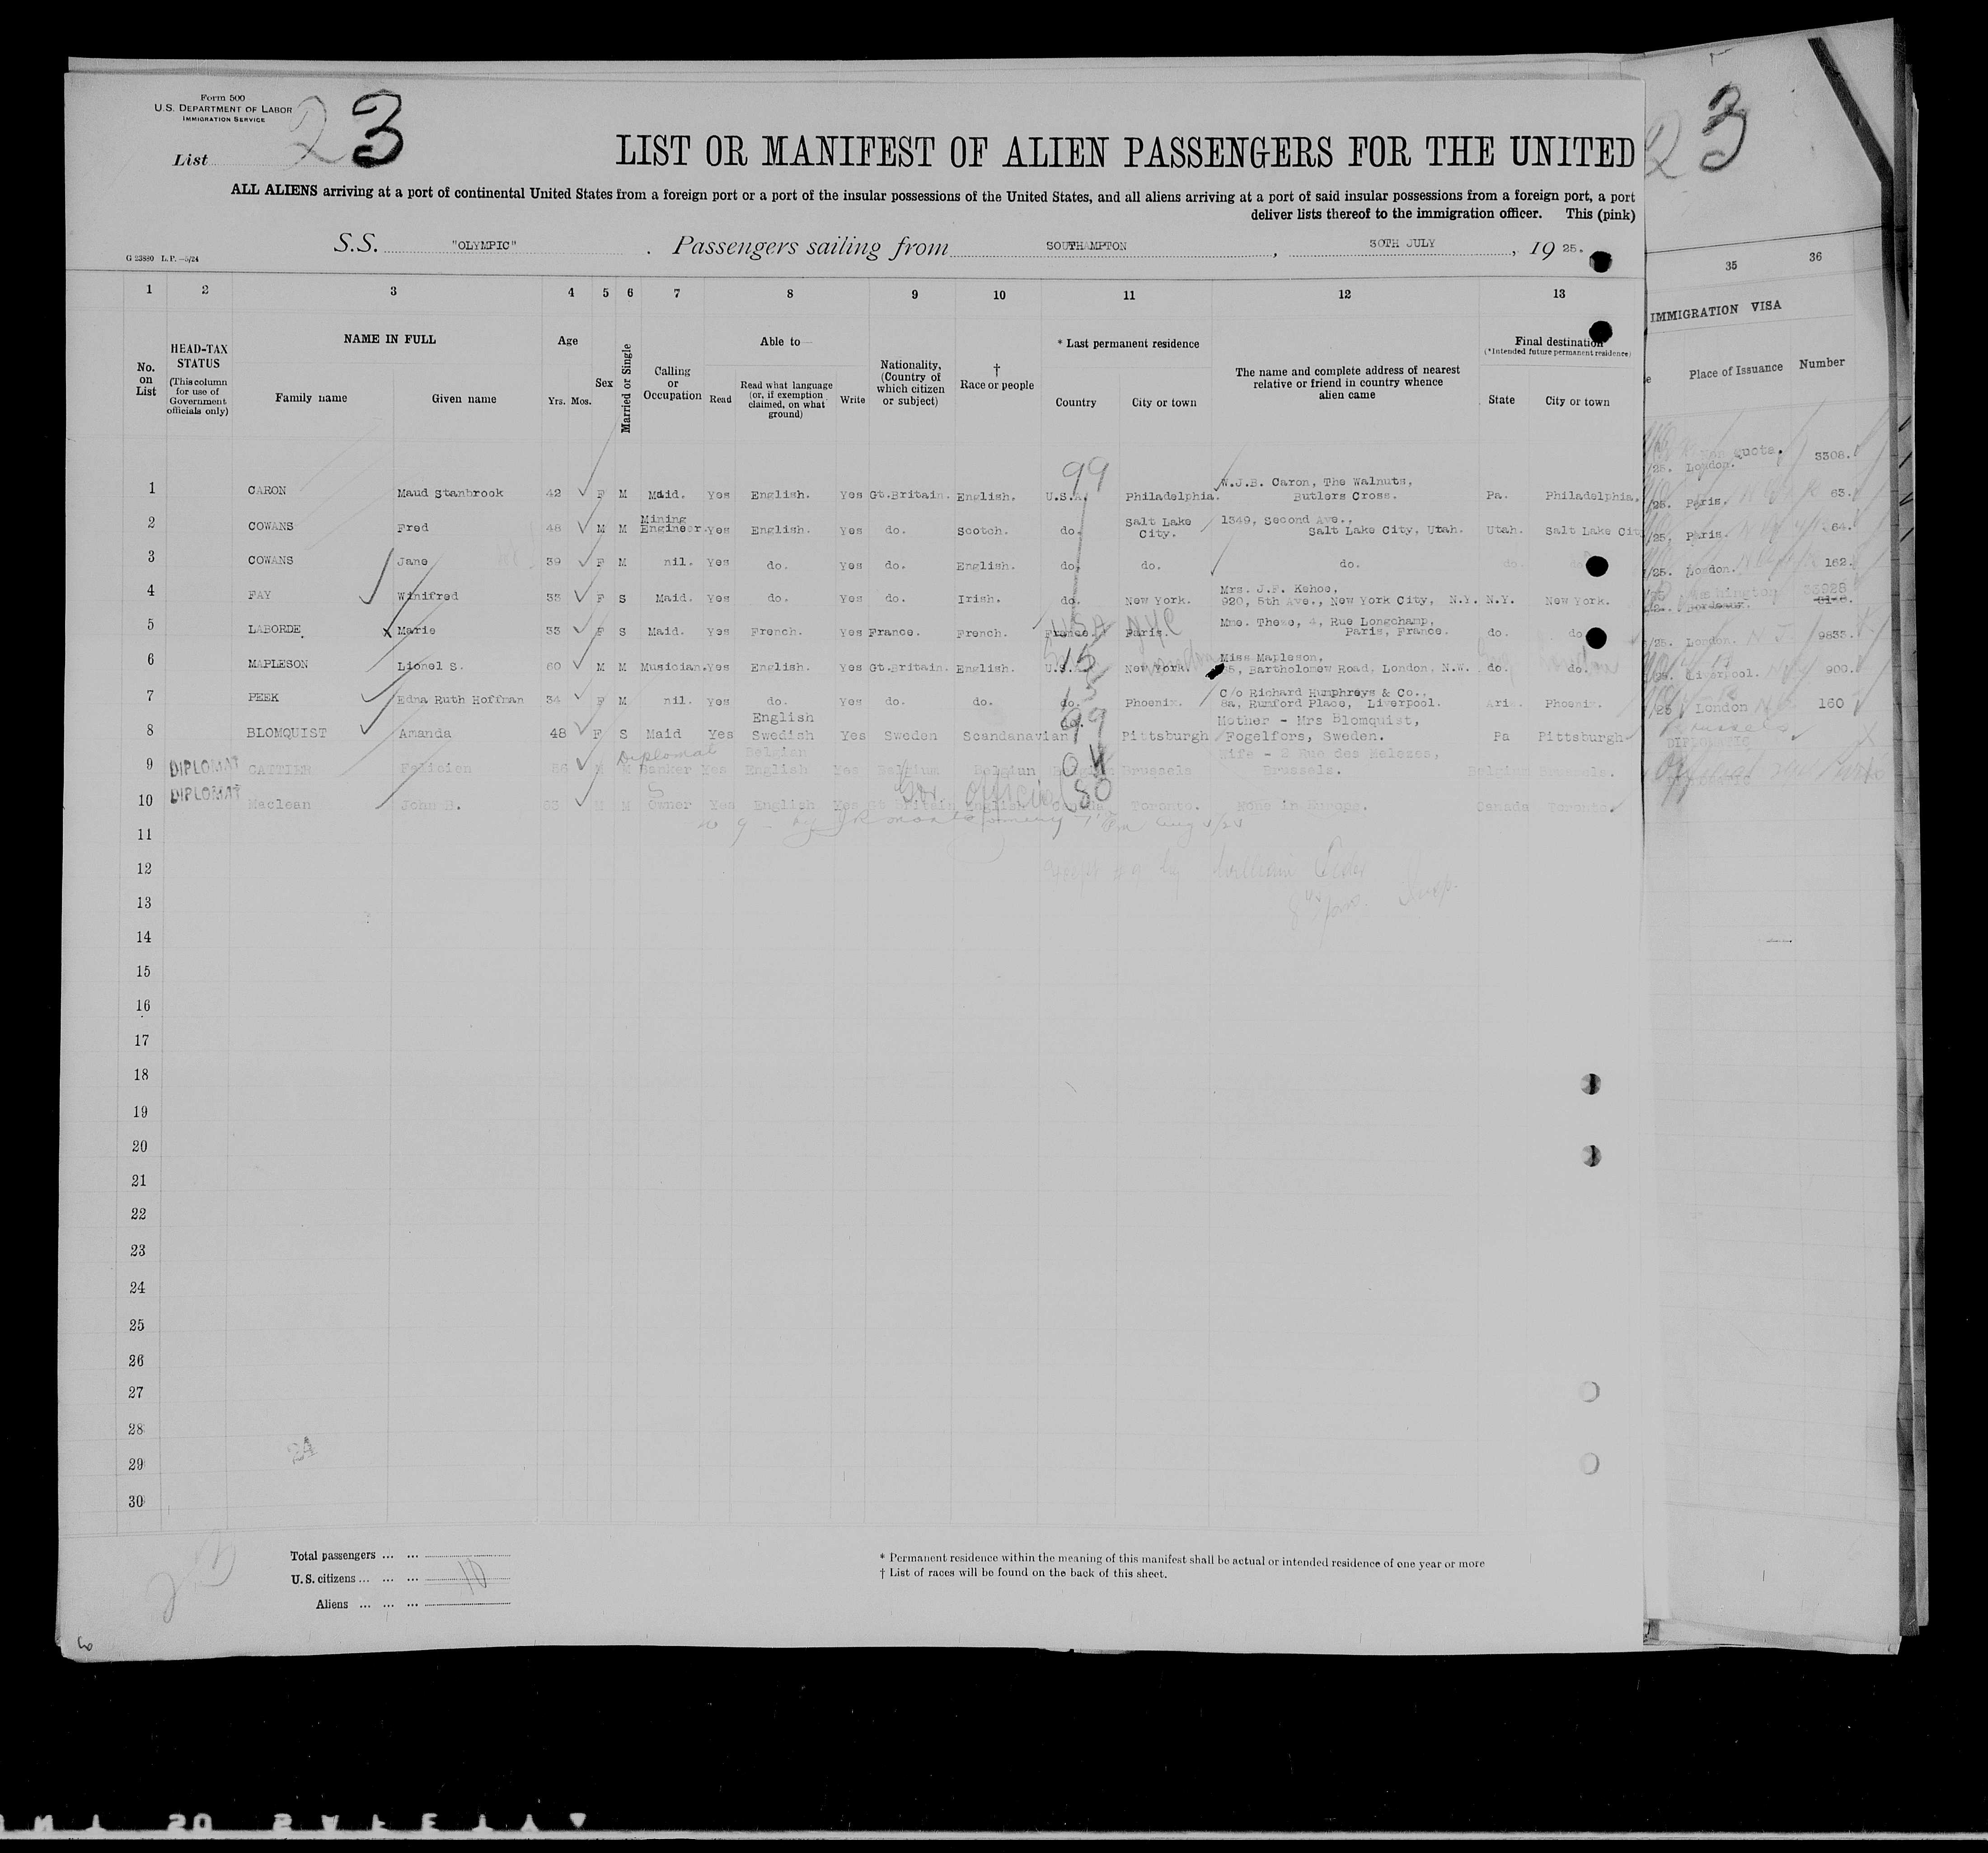 Form 500
U.S. DEPARTMENT OF LABOR
IMMIGRATION SERVICE
List 23
LIST OR MANIFEST OF ALIEN PASSENGERS FOR THE UNITED
ALL ALIENS arriving at a port of continental United States from a foreign port or a port of the insular possessions of the United States, and all aliens arriving at a port of said insular possessions from a foreign port, a port
deliver lists thereof to the immigration officer. This (pink)
S.S. "OLYMPIC" . Passengers sailing from SOUTHAMPTON , 30TH JULY , 19 25.
G 23880 L. P. —5/24
1 2 3 4 5 6 7 8 9 10 11 12 13
No. on List
HEAD-TAX STATUS
(This column for use of Government officials only)
NAME IN FULL
Family name Given name
Age
Yrs. Mos.
Sex
Married or Single
Calling or Occupation
Able to
Read
Read what language (or, if exemption claimed, on what ground)
Write
Nationality, (Country of which citizen or subject)
† Race or people
* Last permanent residence
Country City or town
The name and complete address of nearest relative or friend in country whence alien came
Final destination
(*Intended future permanent residence)
State City or town
99
1 CARON Maud Stanbrook 42 F M Maid. Yes English. Yes Gt.Britain. English. U.S.A. Philadelphia. W.J.B. Caron, The Walnuts, Butlers Cross. Pa. Philadelphia.
2 COWANS Fred 48 M M Mining Engineer. Yes English. Yes do. Scotch. do. Salt Lake City. 1349, Second Ave., Salt Lake City, Utah. Utah. Salt Lake Cit
3 COWANS Jane 39 F M nil. Yes do. Yes do. English. do. do. do. do.
4 FAY Winifred 33 F S Maid. Yes do. Yes do. Irish. do. New York. Mrs. J.F. Kehoe, 920, 5th Ave., New York City, N.Y. N.Y. New York.
5 LABORDE. x Marie 33 F S Maid. Yes French. Yes France. French. France. Paris. Mme. These, 4, Rue Longchamp, Paris, France. do. do
USA NYC
6 MAPLESON Lionel S. 60 M M Musician. Yes English. Yes Gt.Britain. English. U.S.A. New York. Miss Mapleson, 35, Bartholomew Road, London, N.W. do. do.
15
7 PEEK Edna Ruth Hoffman 34 F M nil. Yes do. Yes do. do. do. Phoenix. C/o Richard Humphreys & Co., 8a, Rumford Place, Liverpool. Ari. Phoenix.
8 BLOMQUIST Amanda 48 F S Maid Yes English Swedish Yes Sweden Scandanavian do. Pittsburgh Mother - Mrs Blomquist, Fogelfors, Sweden. Pa Pittsburgh
99
9 DIPLOMAT CATTIER Felicien 56 M M Diplomat Banker Yes Belgian English Yes Belgium Belgian Belgium Brussels Wife - 2 Rue des Melezes, Brussels. Belgium Brussels.
04
10 DIPLOMAT Maclean John B. 63 M M Owner Yes English Yes Gt Britain English Canada Toronto. None in Europe. Canada Toronto.
Gov Official
80
11
12
13
14
15
16
17
18
19
20
21
22
23
24
25
26
27
28
29
30
24
Total passengers ... ...
U.S. citizens ... ... ... 10
Aliens ... ... ...
* Permanent residence within the meaning of this manifest shall be actual or intended residence of one year or more
† List of races will be found on the back of this sheet.
23
35 36
IMMIGRATION VISA
Place of Issuance Number
/25. London. 3308.
/25. Paris. 63.
/25. Paris. 64.
/25. London. 162.
Washington 33928
/25. London. 9833.
Liverpool. 900.
/25 London 160
Brussels
DIPLOMATIC